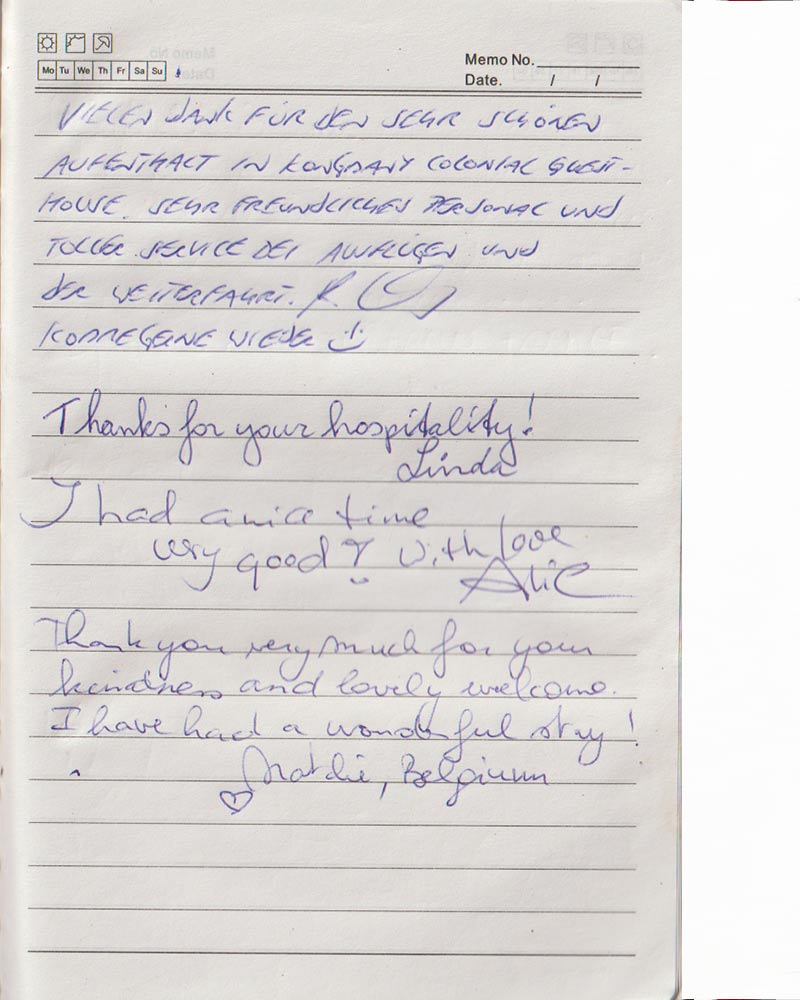 Mo Tu We Th Fr Sa Su
Memo No.
Date. / /
VIELEN DANK FÜR DEN SEHR SCHÖNEN
AUFENTHALT IN COLONIAL GUEST-
HOUSE. SEHR FREUNDLICHES PERSONAL UND
TOLLER SERVICE BEI AUSFLÜGEN UND
DER WEITERFAHRT.
KOMME GERNE WIEDER
Thanks for your hospitality!
Linda
I had a nice time
very good with love
Alic
Thank you very much for your
kindness and lovely welcome.
I have had a wonderful stay!
, Belgium